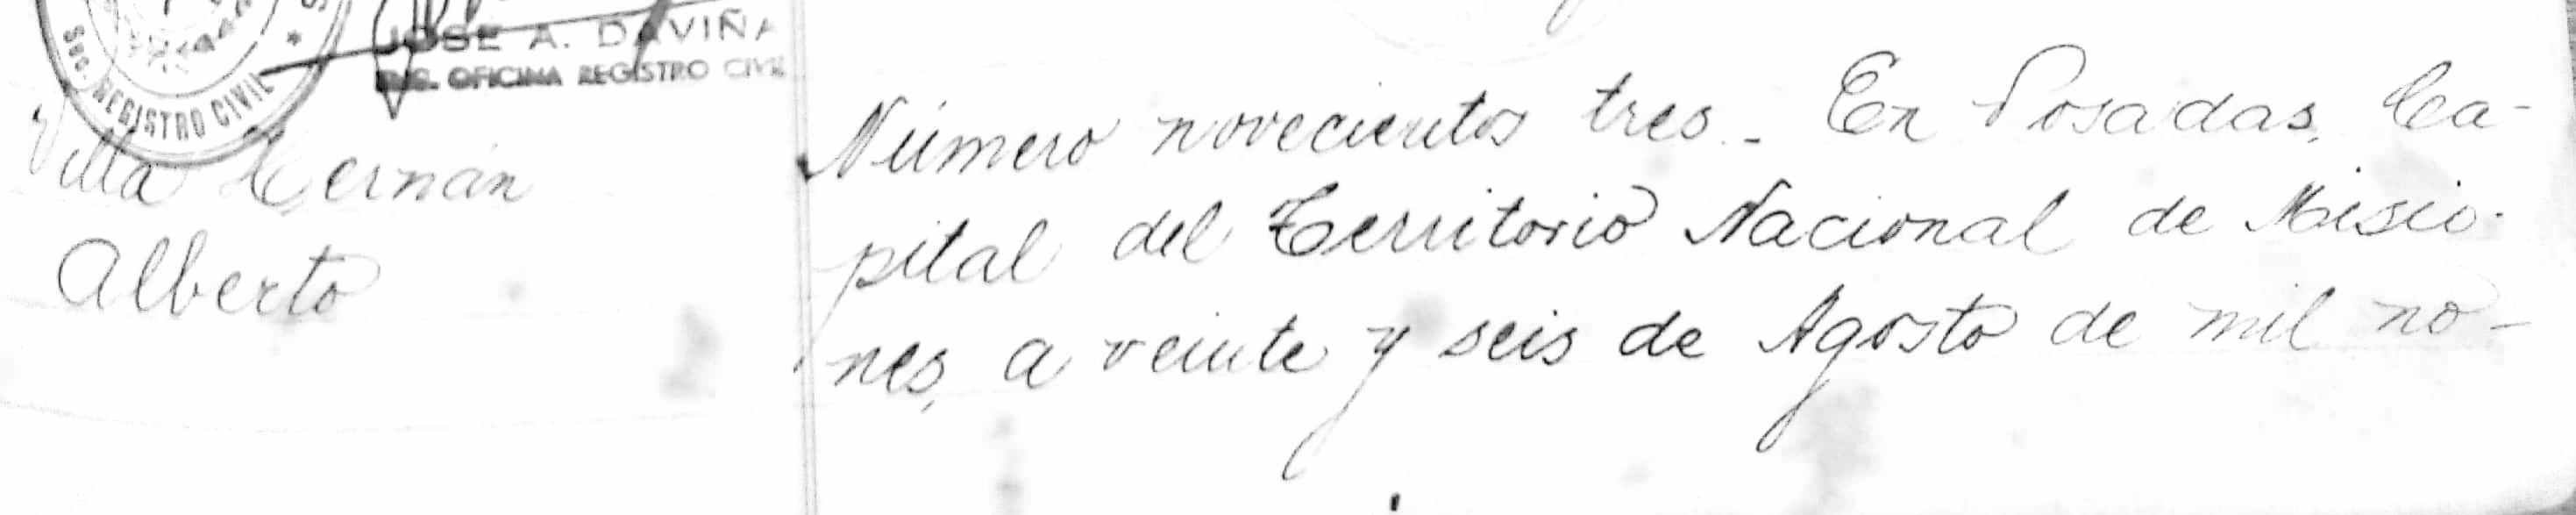 JOSE A. DAVIÑA
OFICINA REGISTRO CIVIL
Sec. REGISTRO CIVIL *
Villa Hernán
Alberto
Número novecientos tres.- En Posadas, Ca-
pital del Territorio Nacional de Misio-
nes, a veinte y seis de Agosto de mil no-